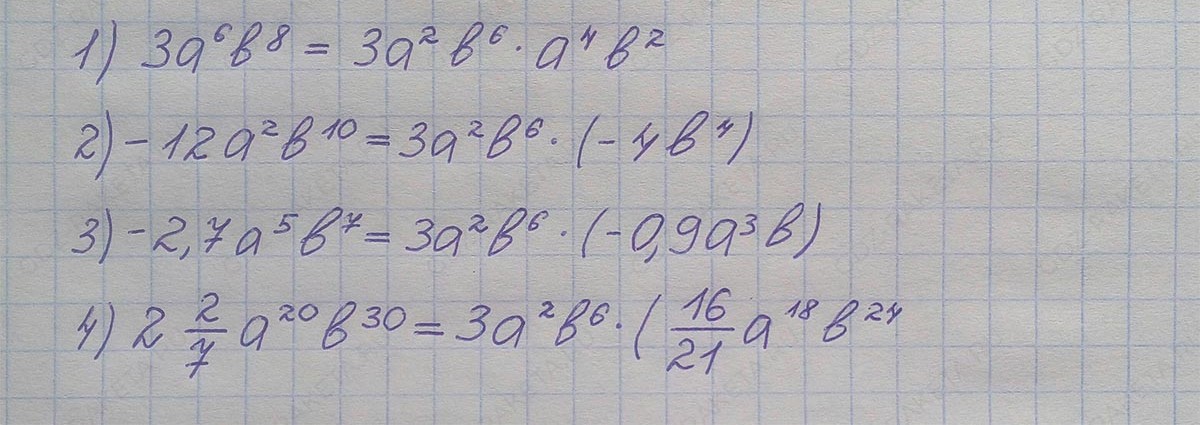 1) 3a⁶b⁸ = 3a²b⁶ · a⁴b²
2) - 12a²b¹⁰ = 3a²b⁶ · (- 4b⁴)
3) - 2,7a⁵b⁷ = 3a²b⁶ · (-0,9a³b)
4) 2 2/7 a²⁰b³⁰ = 3a²b⁶ · ( 16/21 a¹⁸b²⁴